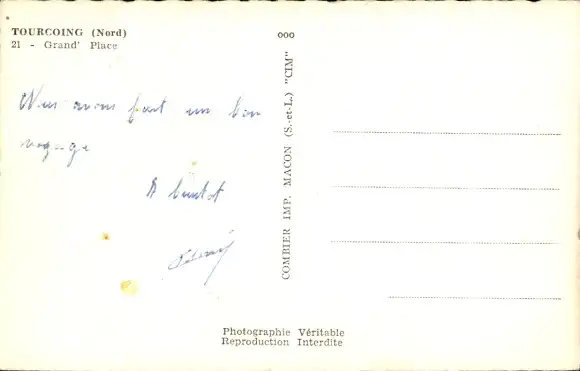 TOURCOING (Nord)
21 - Grand' Place
ooo
Nous avons fait un bon
voyage
A bientot
COMBIER IMP. MACON (S.-et-L.) "CIM"
Photographie Véritable
Reproduction Interdite